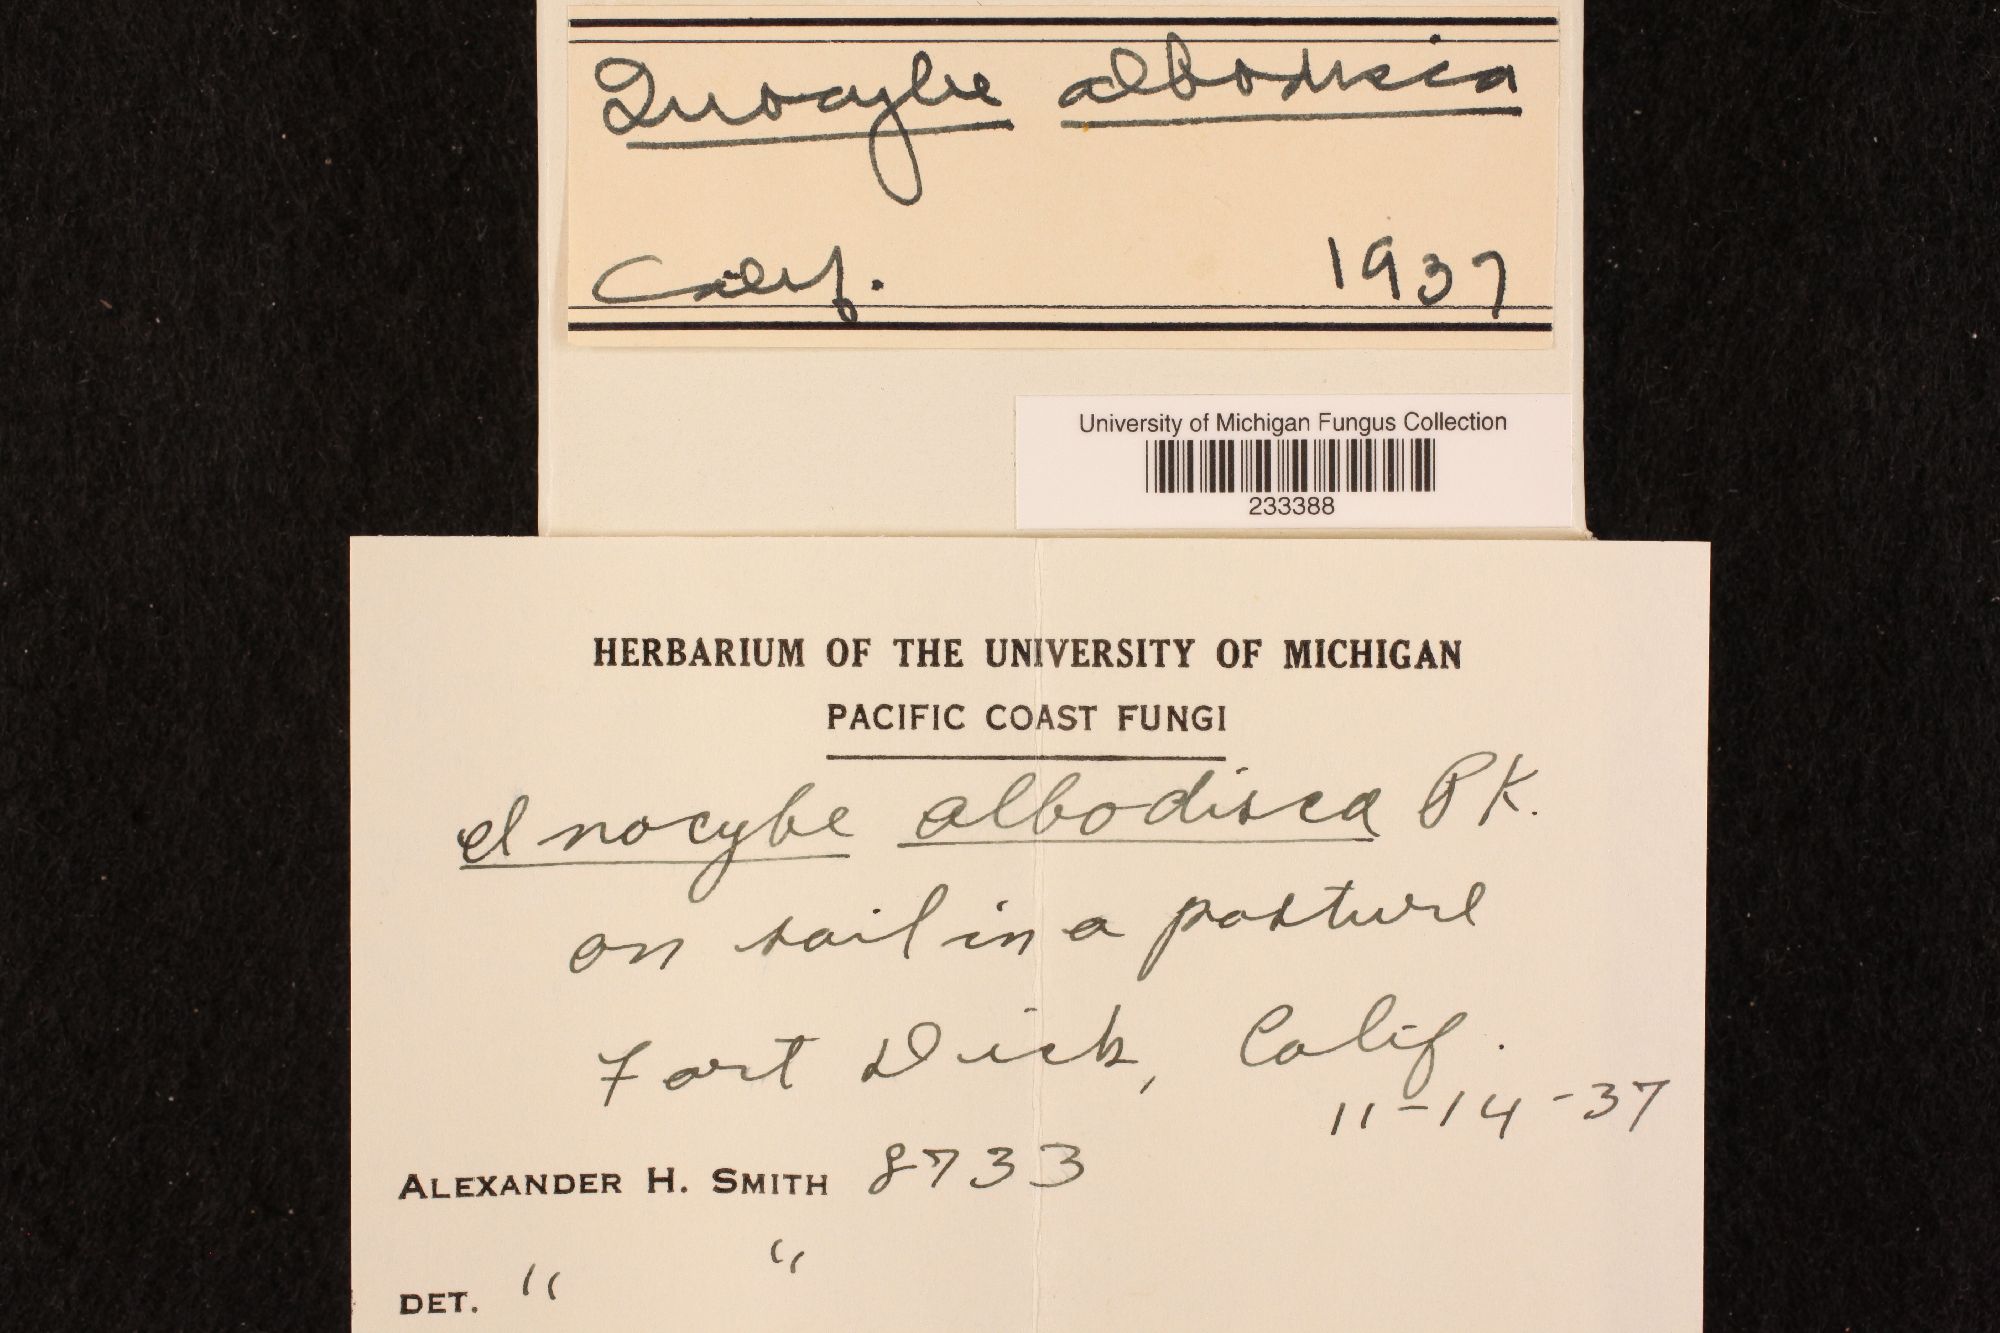 Inocybe albodisca
Calif. 1937
University of Michigan Fungus Collection
233388
HERBARIUM OF THE UNIVERSITY OF MICHIGAN
PACIFIC COAST FUNGI
Inocybe albodisca PK.
on soil in a pasture
Fort Dick, Calif.
11-14-37
ALEXANDER H. SMITH 8733
DET. " "